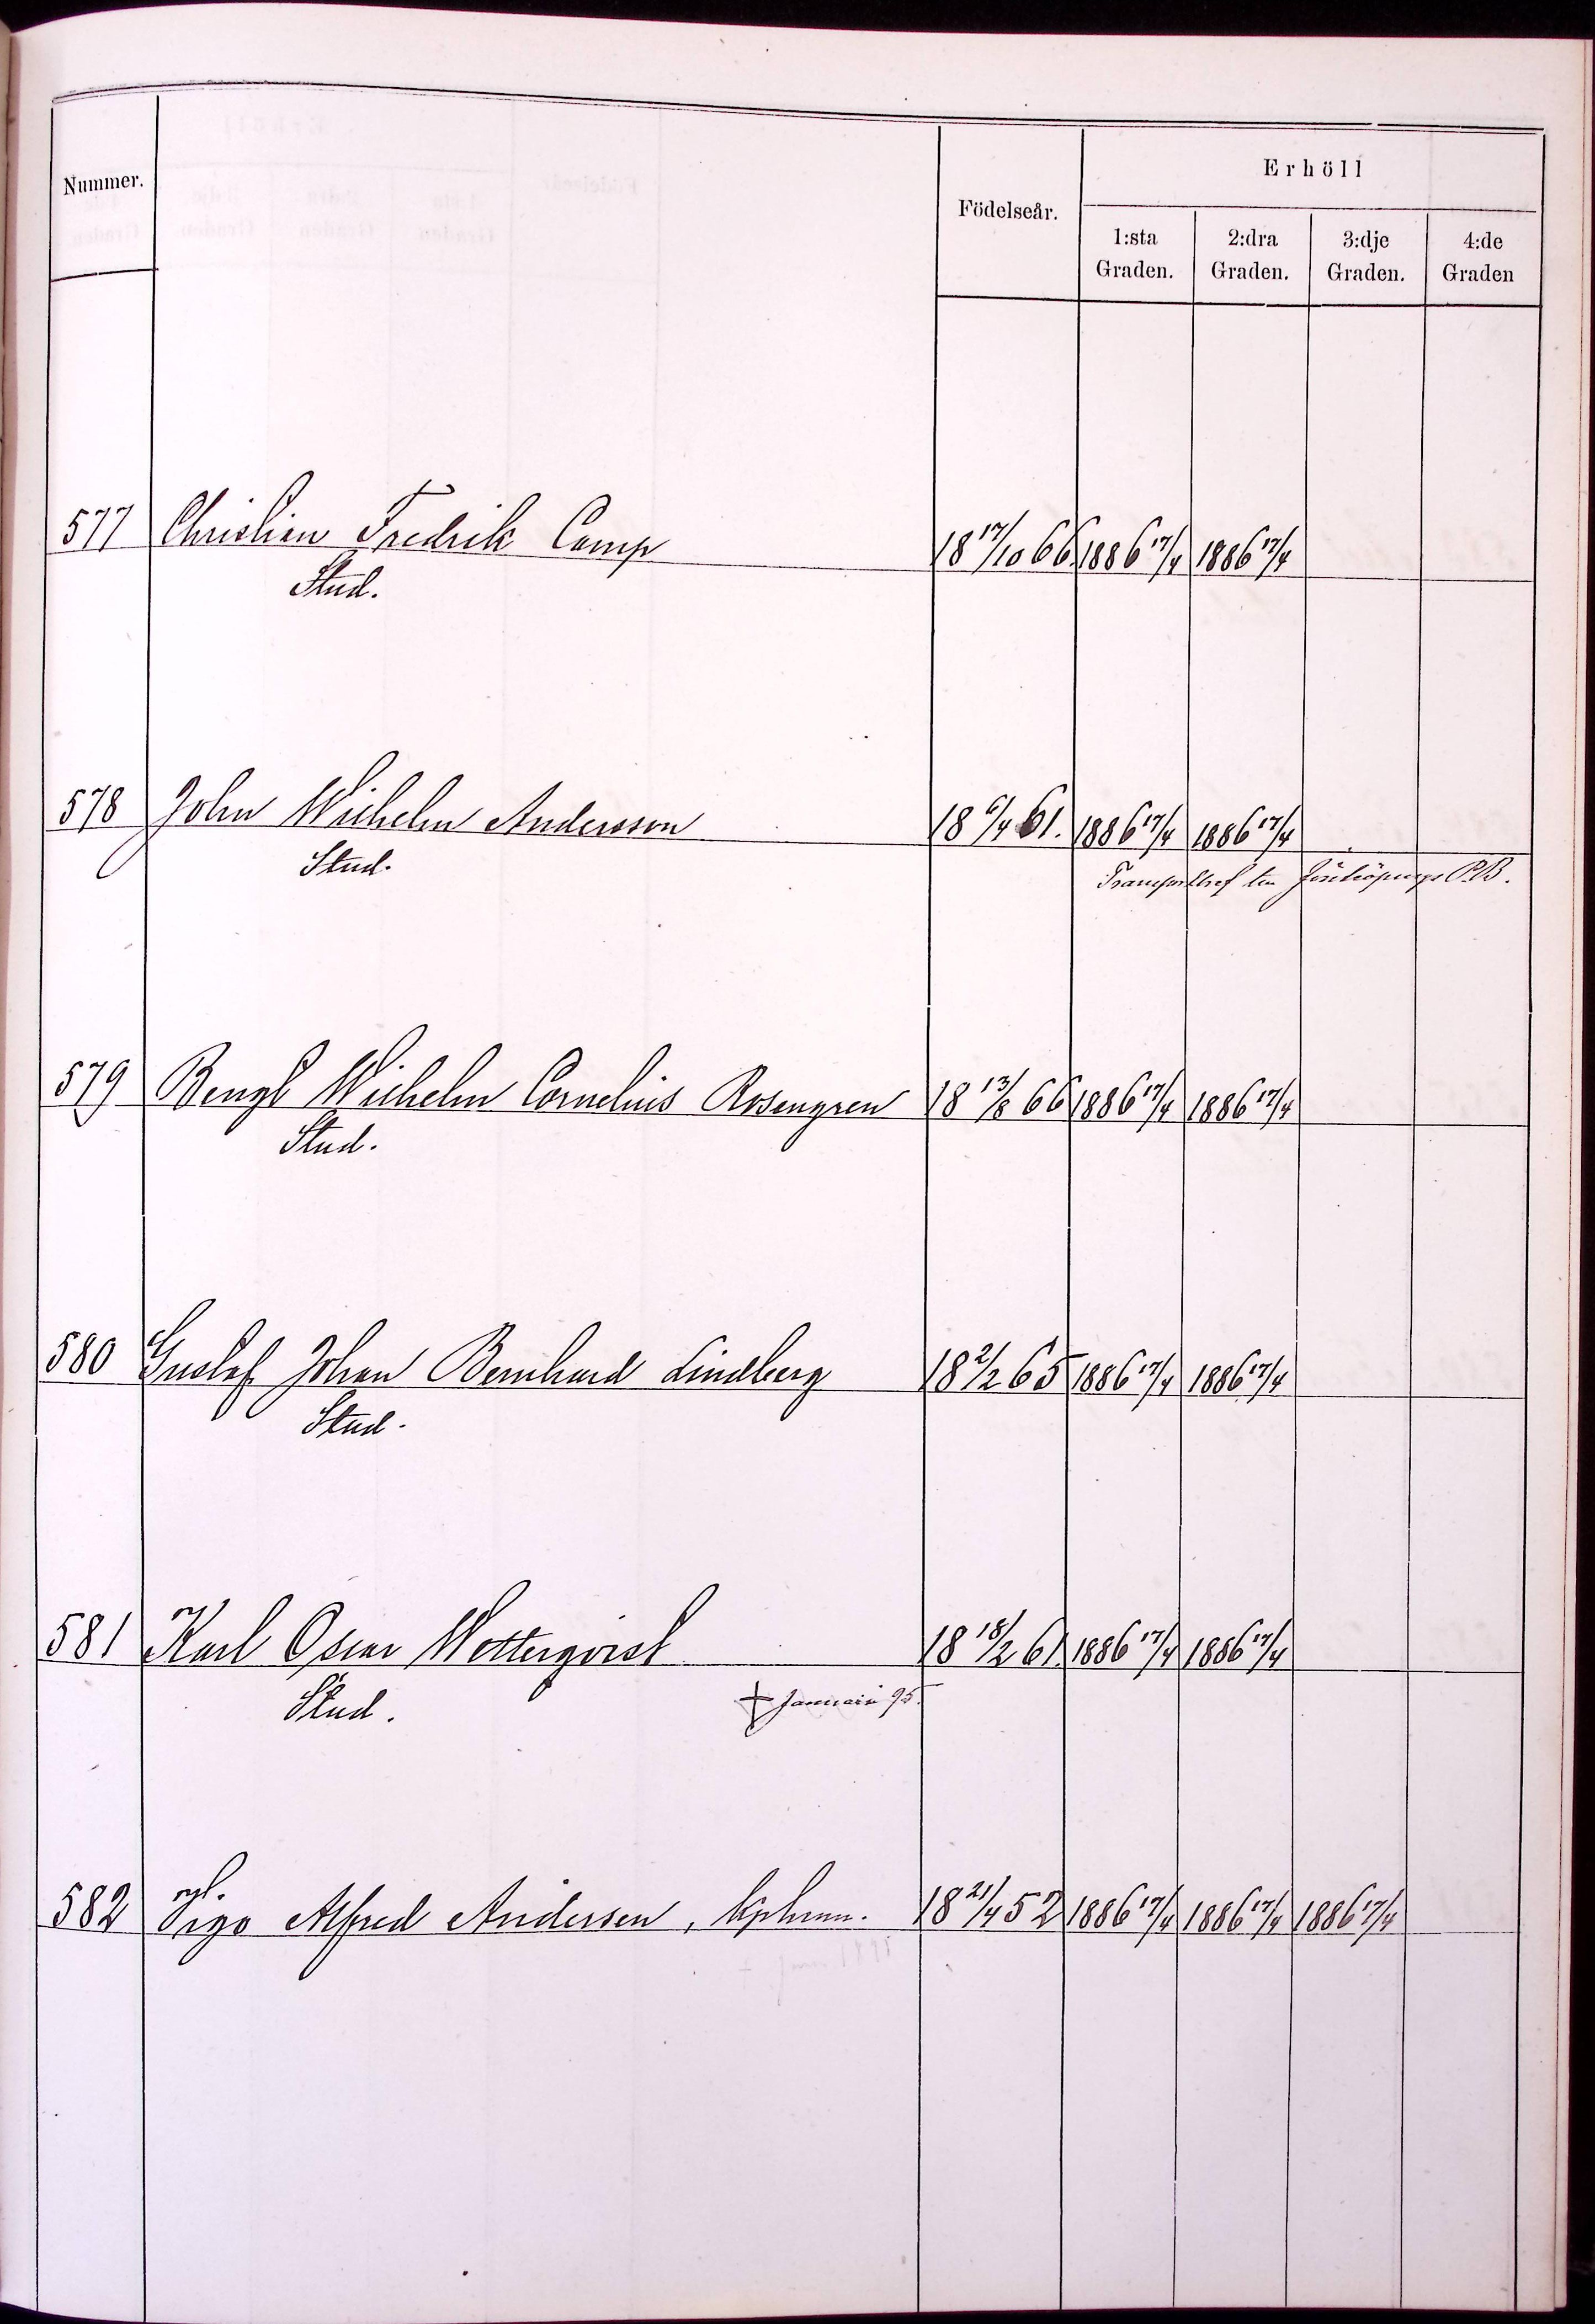 Nummer.
Födelseår.
Erhöll
1:sta Graden.
2:dra Graden.
3:dje Graden.
4:de Graden
577 Christian Fredrik Camp 18 17/10 66 1886 17/4 1886 17/4
Stud.
578 John Wilhelm Andersson 18 6/4 61. 1886 17/4 1886 17/4
Stud.
Transportbref till Jönköpings P.B.
579 Bengt Wilhelm Cornelius Rosengren 18 13/8 66 1886 17/4 1886 17/4
Stud.
580 Gustaf Johan Bernhard Lindberg 18 2/2 65 1886 17/4 1886 17/4
Stud.
581 Karl Oscar Wetterqvist 18 18/2 61. 1886 17/4 1886 17/4
Stud.
† Januari 95.
582 Vigo Alfred Andersen, 18 21/4 52 1886 17/4 1886 17/4 1886 17/4